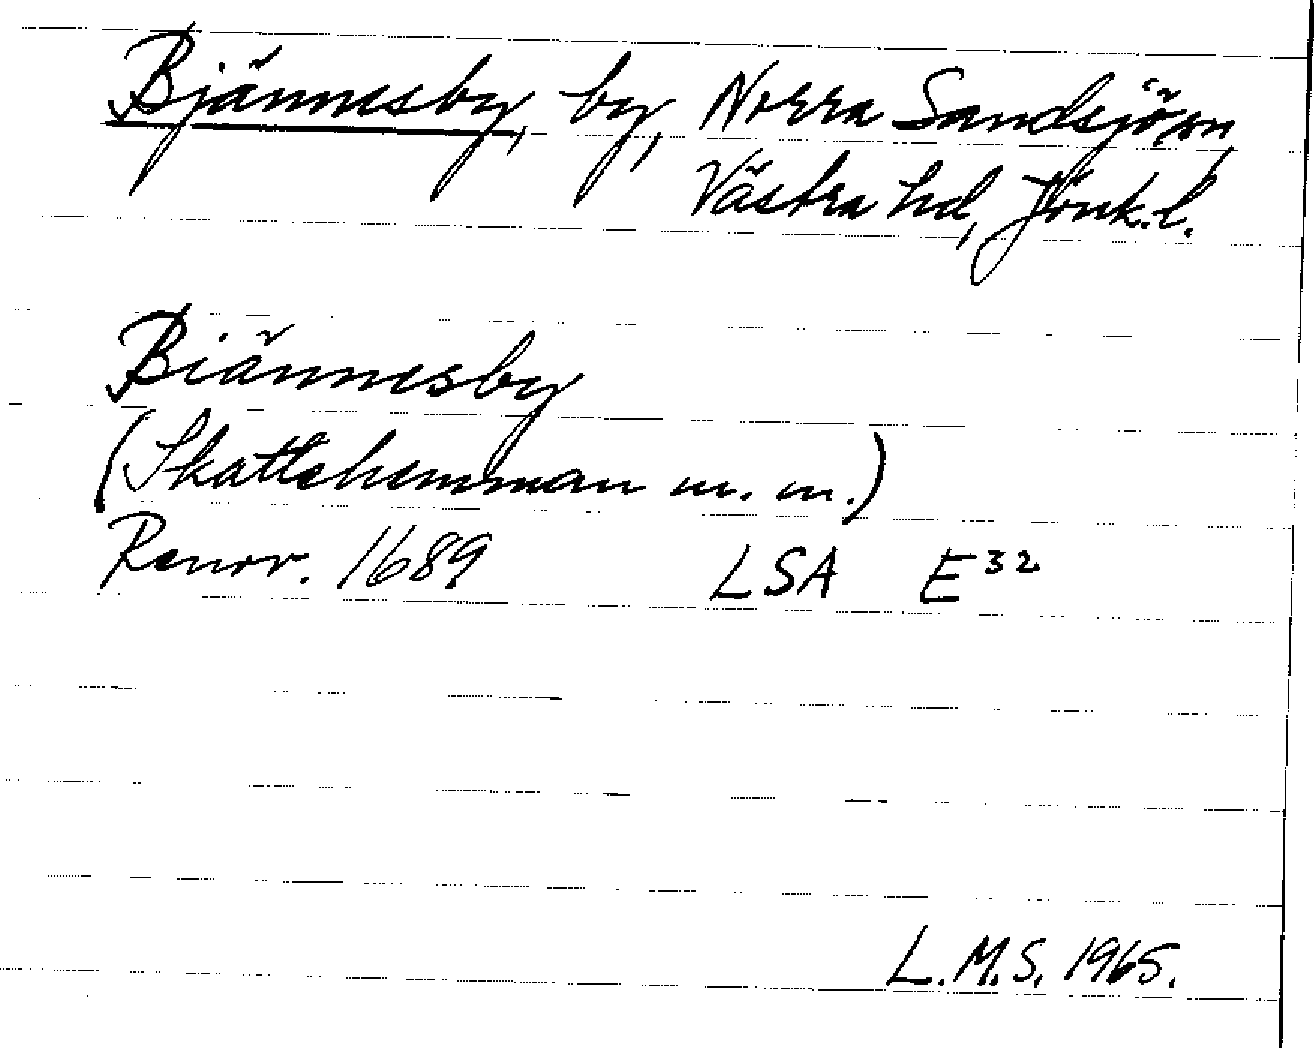 Bjännesby, by, Norra Sandsjö sn,
Västra hd, Jönk.l.
Biännesby
(Skattehemman m. m.)
Renov. 1689 LSA E³²
L.M.S. 1965.